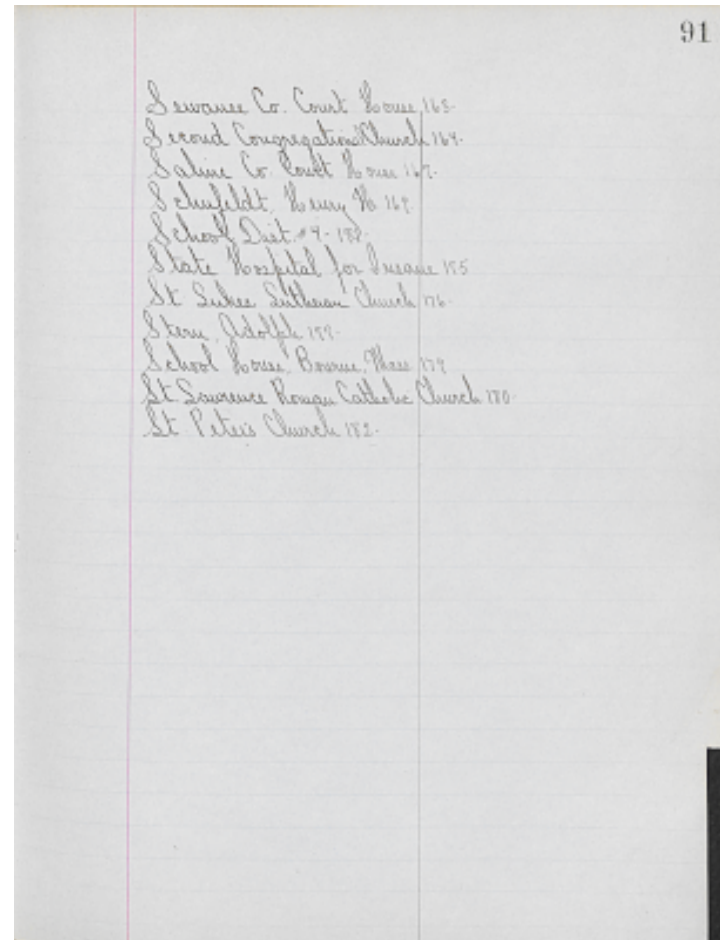 91
Sewanee Co. Court House 165-
Second Congregational Church 164-
Saline Co. Court House 167-
Schufeldt, Henry H. 169
School Dist. #4-
State Hospital for Insane 175
St Lukes Lutheran Church 176-
Stern, Adolph
School House, Bourne, Mass 179
St Lawrence Roman Catholic Church 180-
St. Peters Church 182-